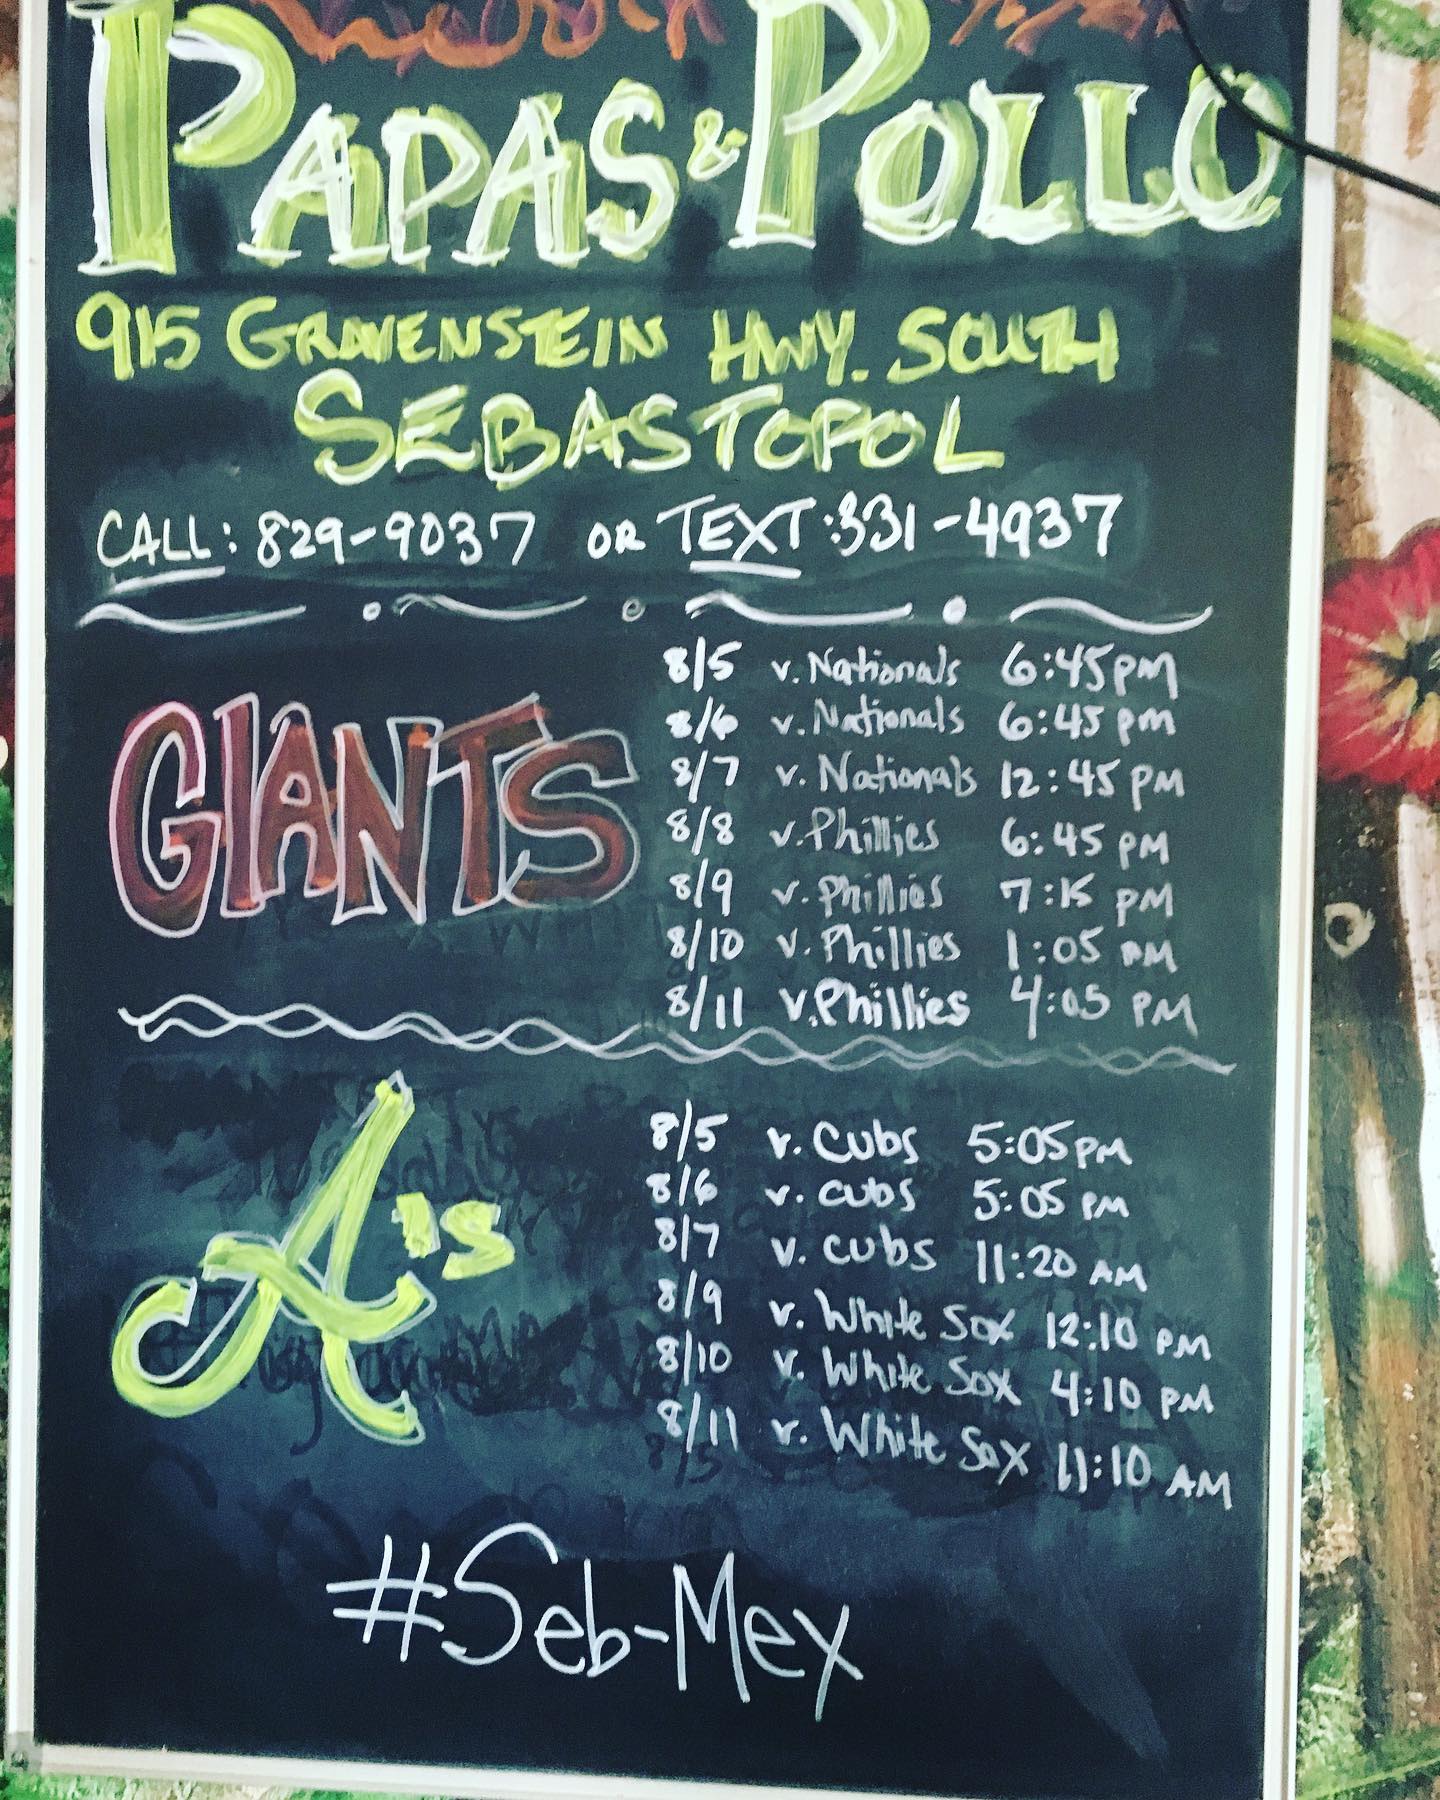 PAPAS & POLLO
915 GRAVENSTEIN HWY. SOUTH
SEBASTOPOL
CALL: 829-9037 OR TEXT: 331-4937
GIANTS
8/5 v. Nationals 6:45 PM
8/6 v. Nationals 6:45 PM
8/7 v. Nationals 12:45 PM
8/8 v. Phillies 6:45 PM
8/9 v. Phillies 7:15 PM
8/10 v. Phillies 1:05 PM
8/11 v. Phillies 4:05 PM
A's
8/5 v. Cubs 5:05 PM
8/6 v. Cubs 5:05 PM
8/7 v. Cubs 11:20 AM
8/9 v. White Sox 12:10 PM
8/10 v. White Sox 4:10 PM
8/11 v. White Sox 11:10 AM
8/5
#Seb-Mex